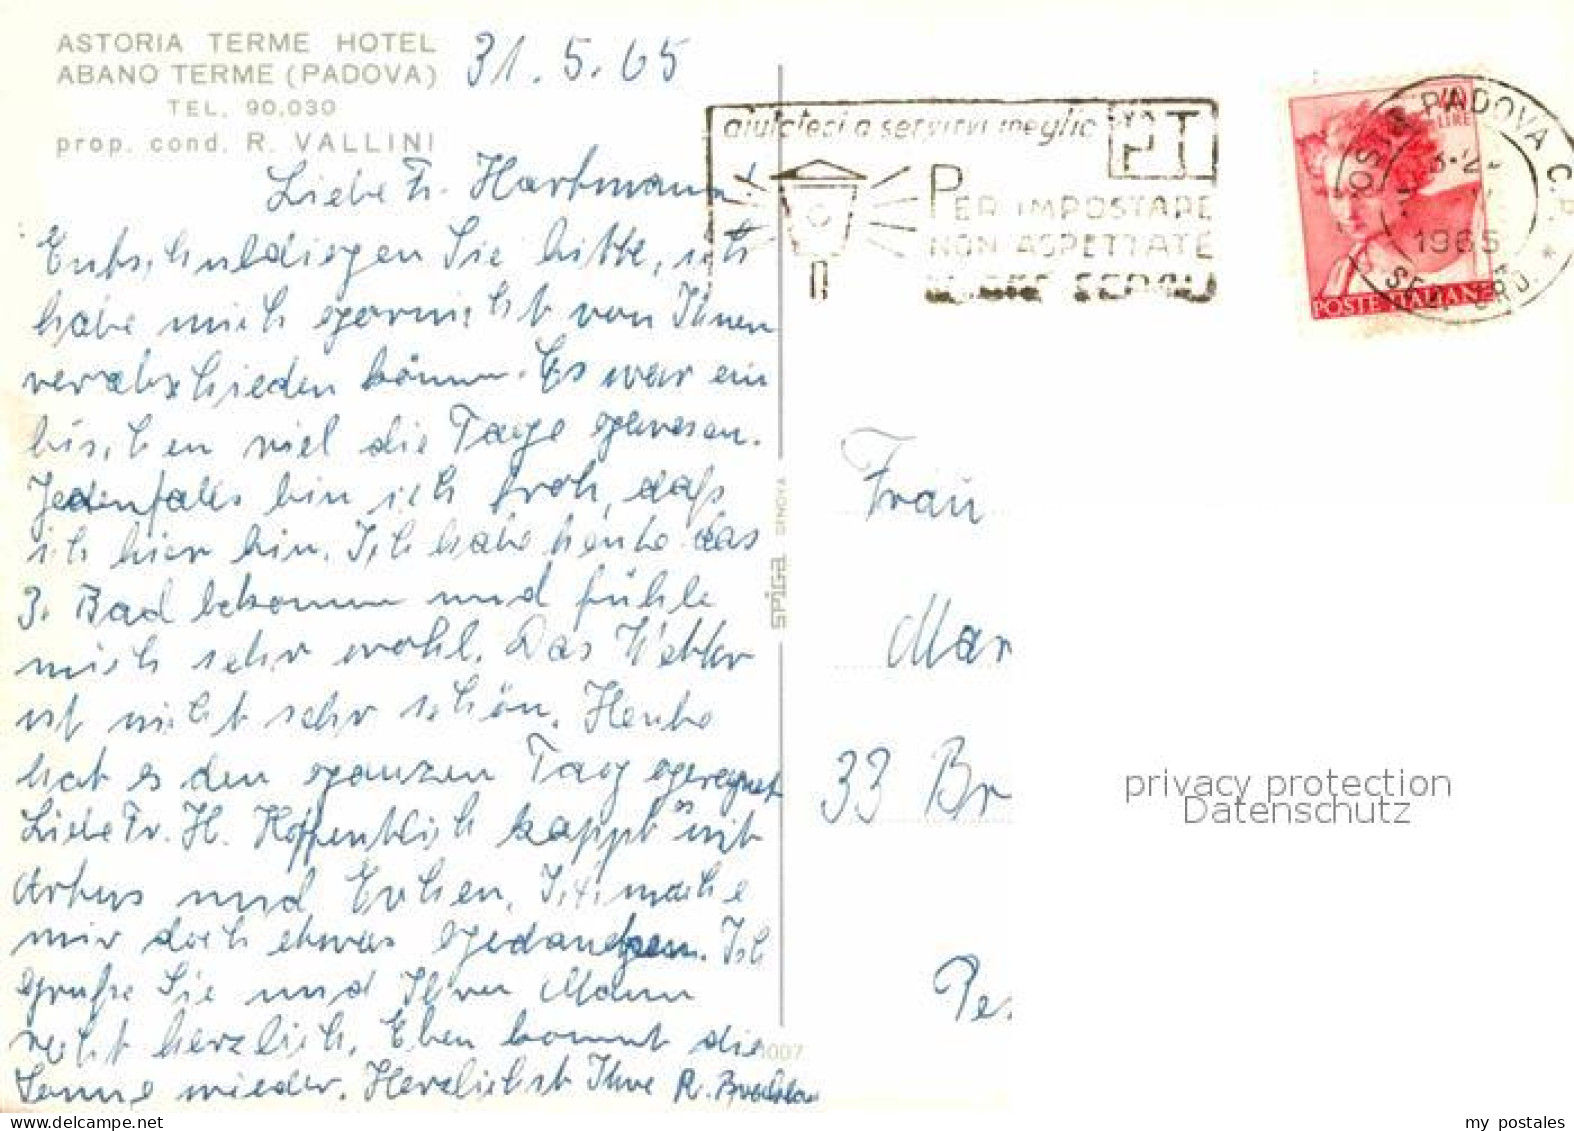 ASTORIA TERME HOTEL
ABANO TERME (PADOVA)
TEL. 90.030
prop. cond. R. VALLINI
31.5.65
Liebe Fr. Hartmann!
Entschuldiegen Sie bitte, ich
habe mich garnicht von Ihnen
verabschieden können. Es war ein
bischen viel die Tage gewesen.
Jedenfalls bin ich froh, daß
ich hier bin. Ich habe heute das
3. Bad bekommen und fühle
mich sehr wohl. Das Wetter
ist nicht sehr schön. Heute
hat es den ganzen Tag geregnet
Liebe Fr. H. Hoffentlich kappt es mit
und Ich mache
mir doch etwas gedanken. Ich
grüße Sie und Ihren Mann
recht herzlich. Eben kommt die
Sonne wieder. Herzlichst Ihre R.
aiutateci a servirvi meglio PT
PER IMPOSTARE
NON ASPETTATE
SPIGA GENOVA
1007
LIRE
POSTE ITALIANE
PADOVA C.P.
1965
Frau
Mar
33 Br
Pe
privacy protection
Datenschutz
my postales